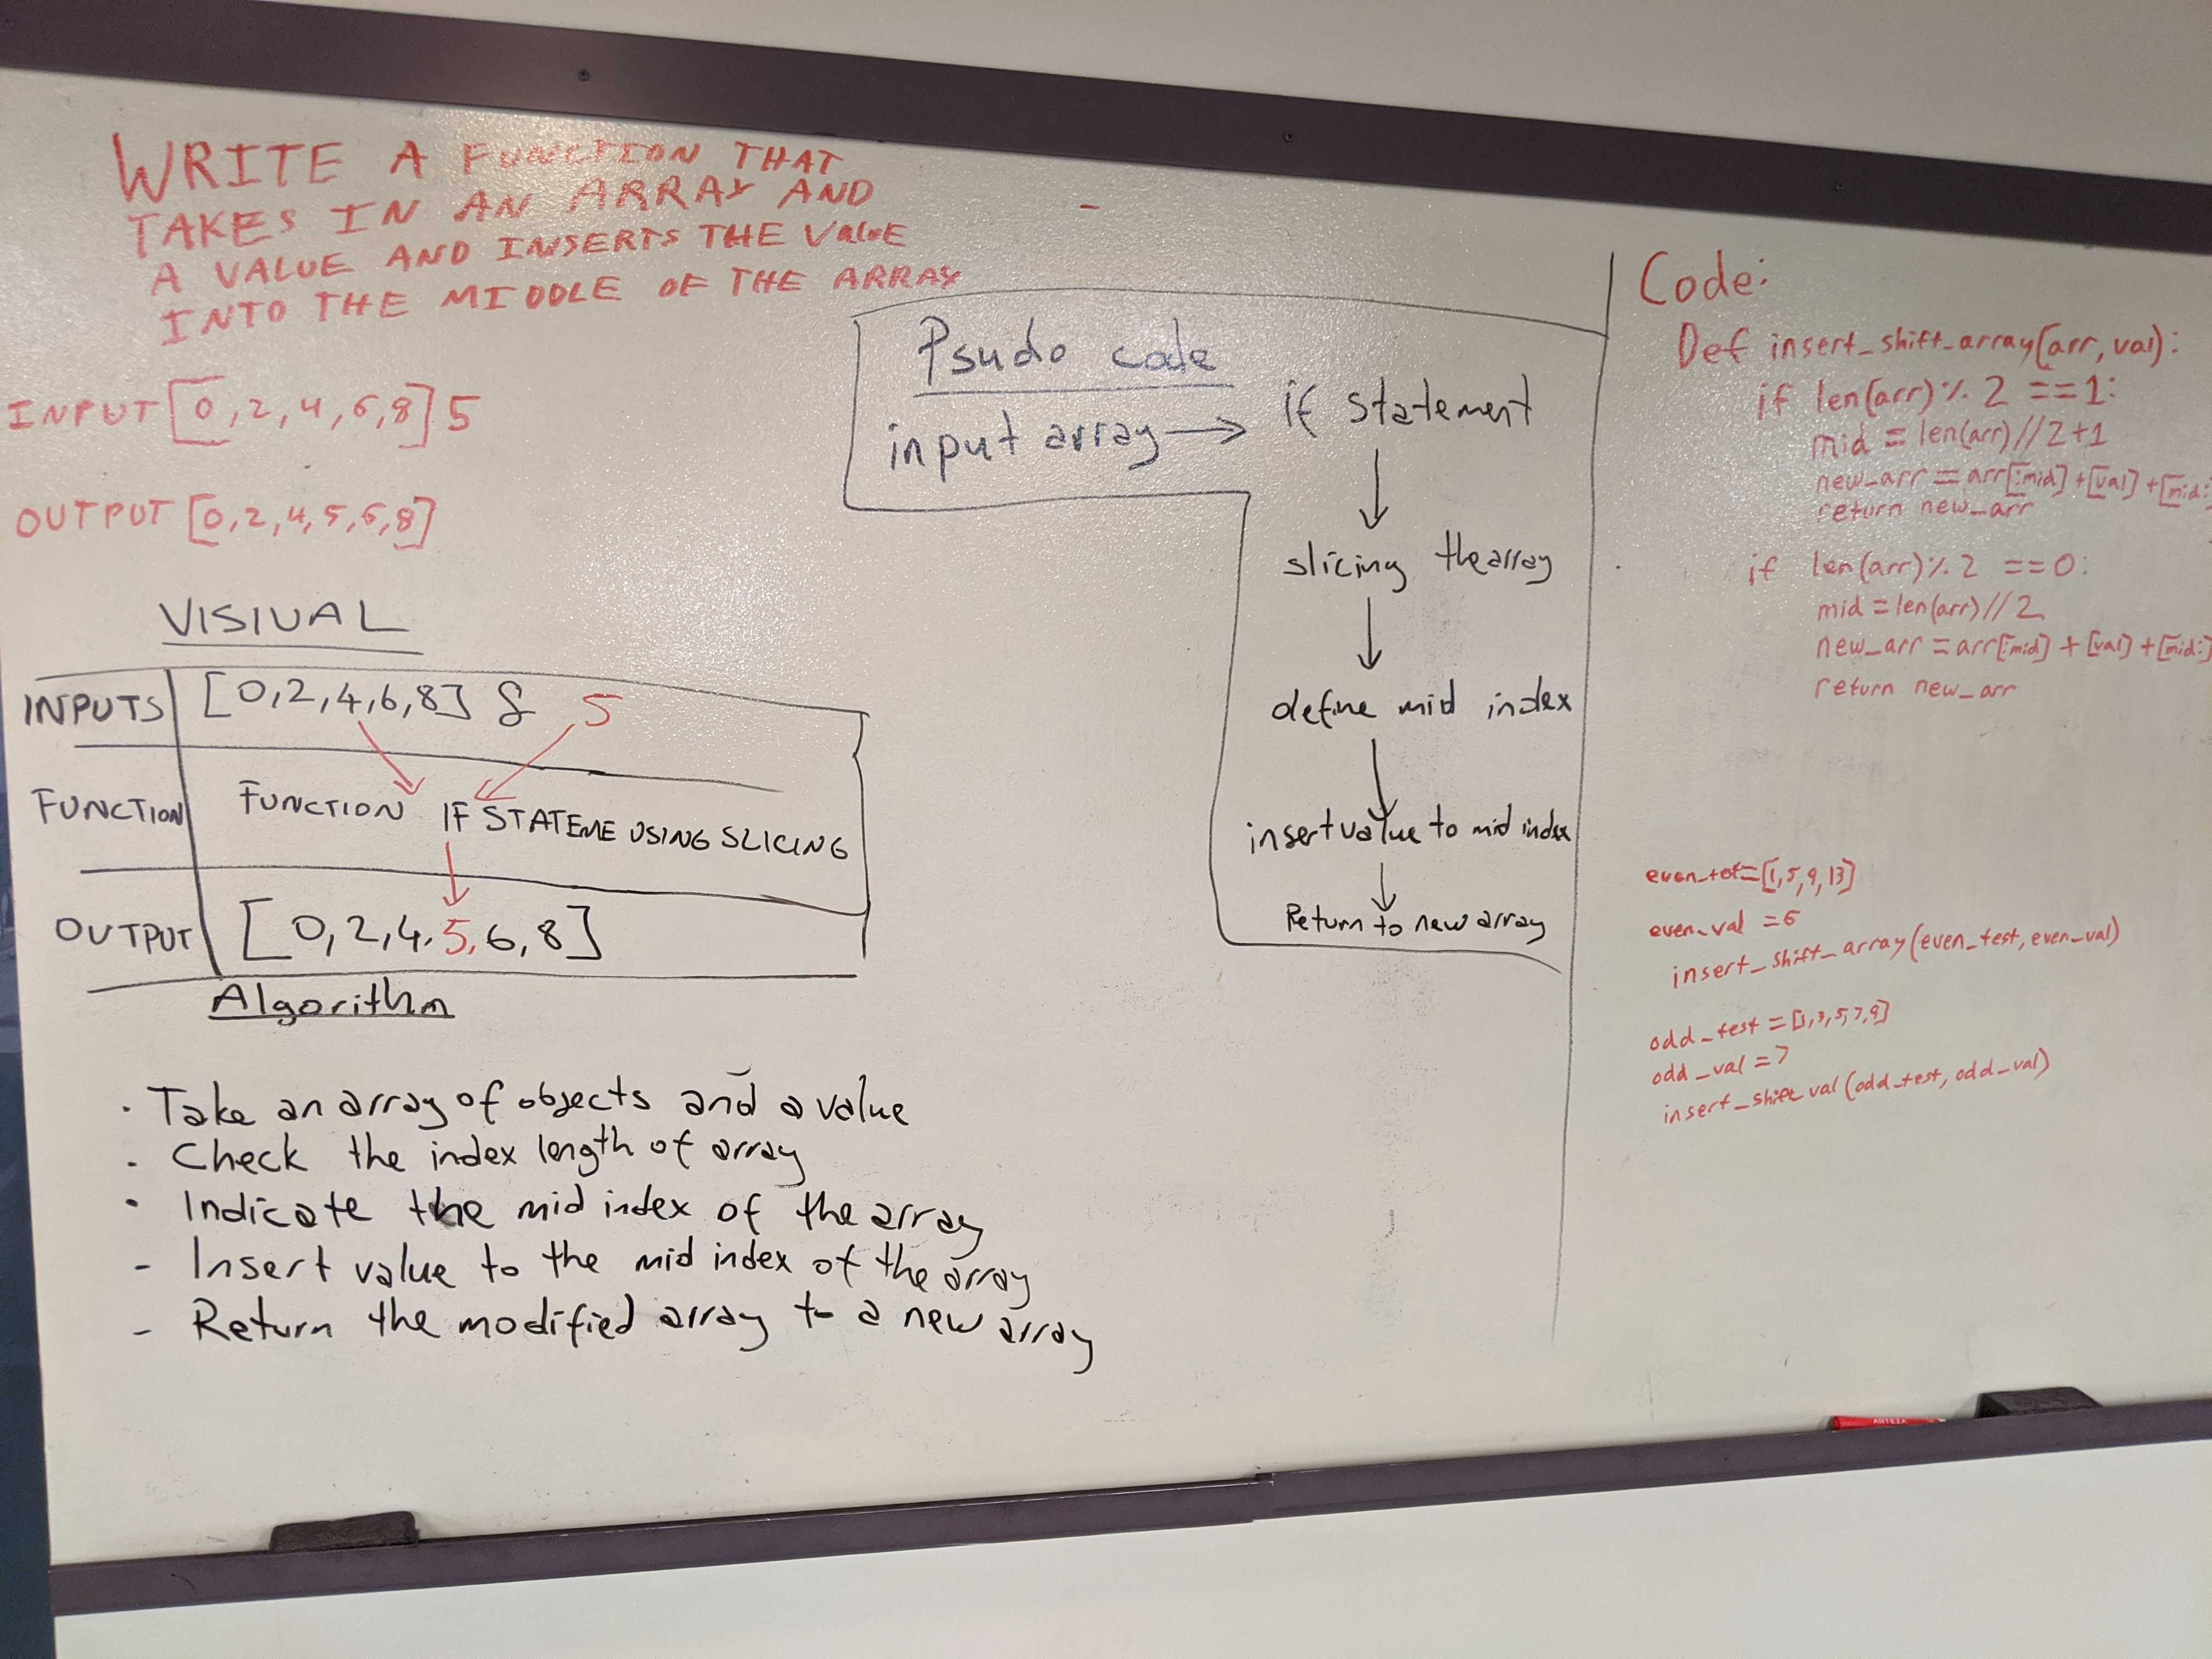 WRITE A FUNCTION THAT
TAKES IN AN ARRAY AND
A VALUE AND INSERTS THE VALUE
INTO THE MIDDLE OF THE ARRAY
INPUT [0,2,4,6,8] 5
OUTPUT [0,2,4,5,6,8]
VISIUAL
INPUTS [0,2,4,6,8] & 5
FUNCTION FUNCTION IF STATEME USING SLICING
OUTPUT [0,2,4,5,6,8]
Algorithm
· Take an array of objects and a value
· Check the index length of array
· Indicate the mid index of the array
- Insert value to the mid index of the array
- Return the modified array to a new array
Psudo code
input array → if statement
slicing the array
define mid index
insert value to mid index
Return to new array
Code:
Def insert_shift_array(arr, val):
if len(arr) % 2 == 1:
mid = len(arr)//2+1
new_arr = arr[:mid] + [val] + [mid:
return new_arr
if len(arr) % 2 == 0:
mid = len(arr)//2
new_arr = arr[:mid] + [val] + [mid:]
return new_arr
even_tet=[1,5,9,13]
even_val = 6
insert_shift_array(even_test, even_val)
odd_test = [1,3,5,7,9]
odd_val = 7
insert_shift_val(odd_test, odd_val)
ARTEZA